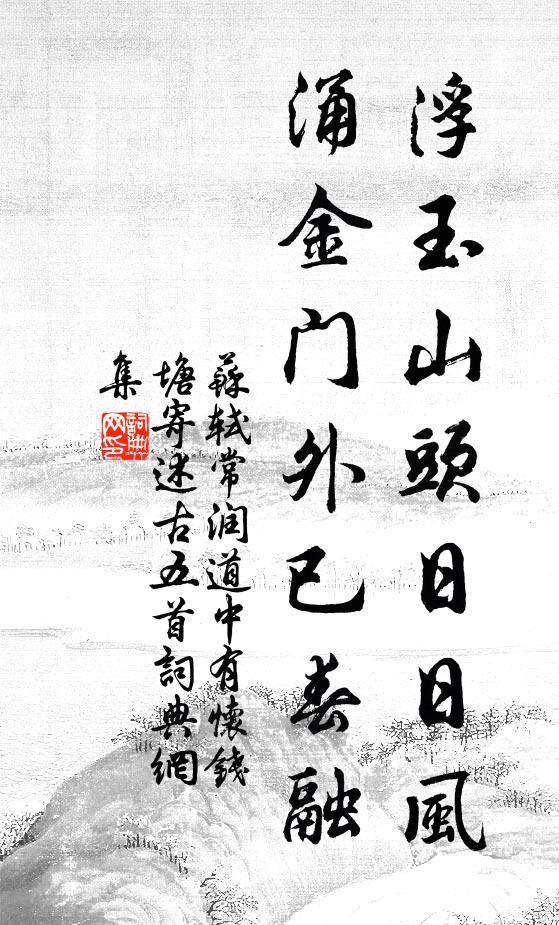 浮玉山頭日日風
涌金门外已春融
蘇軾常润道中有懷錢
塘寄述古五首詞典網
集
詞典
网印